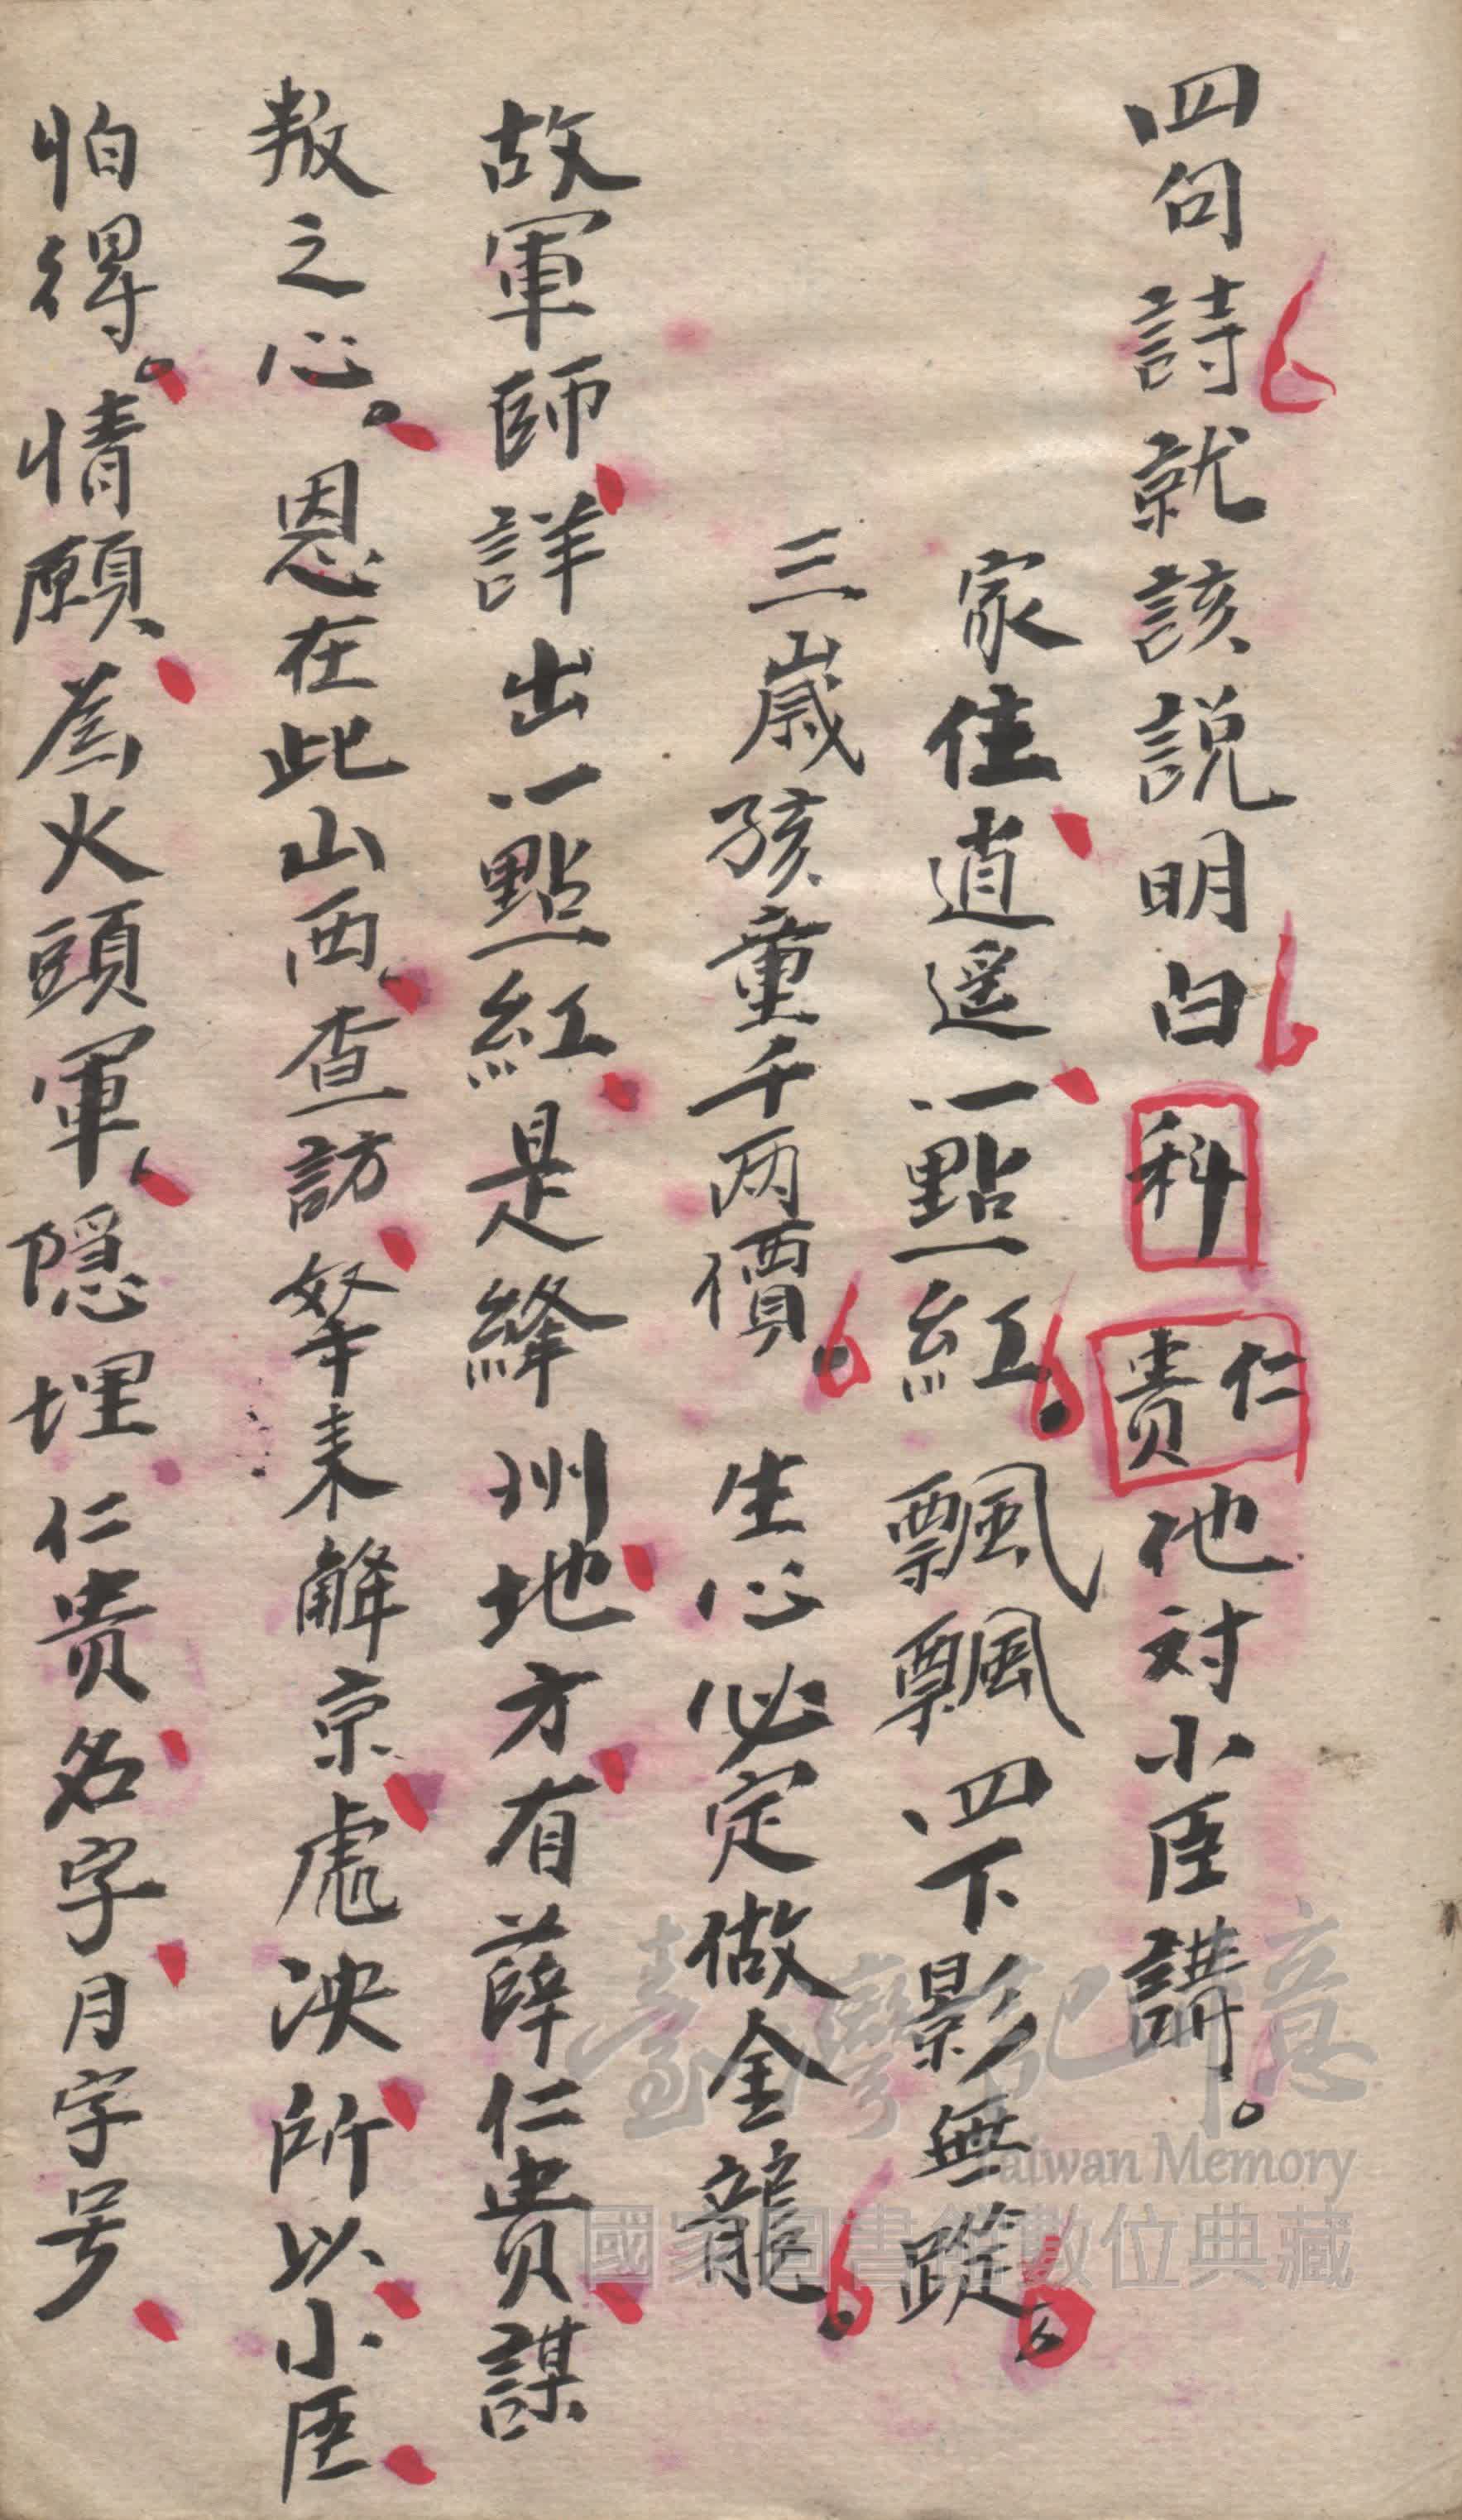 四句詩就該説明白科仁貴他对小臣講。
家住逍遥一點紅。飄飄四下影無蹤。
三歲孩童千两價。生心必定做金龍。
故軍師詳出一點紅是絳州地方有薛仁貴謀
叛之心。恩在此山西查訪拏来觧京處决所以小臣
怕得。情願為火頭軍、隱埋仁贵名字月字号
臺灣記憶
Taiwan Memory
國家圖書館數位典藏